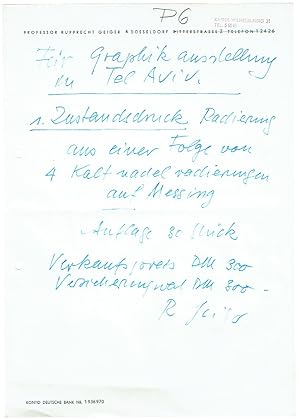 P6
PROFESSOR RUPPRECHT GEIGER 4 DÜSSELDORF
TELEFON 12426
Für Graphik ausstellung
in Tel Aviv.
1. Zustandsdruck Radierung
aus einer Folge von
4 Kaltnadelradierungen
auf Messing
Auflage 30 Stück
Verkaufspreis DM 300
Versicherungswert DM 300-
R Geiger
KONTO DEUTSCHE BANK NR. 1936970